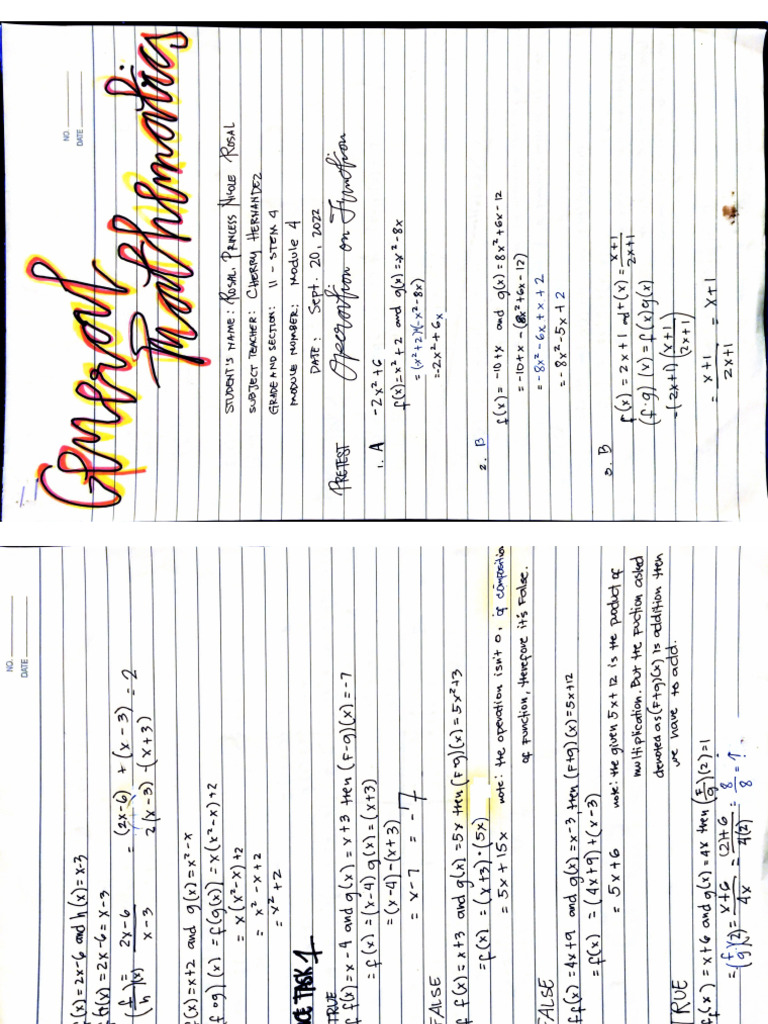 General
Mathematics
NO.
DATE
STUDENT'S NAME: ROSAL, PRINCESS NICOLE ROSAL
SUBJECT TEACHER: CHERRY HERNANDEZ
GRADE AND SECTION: 11 - STEM 4
MODULE NUMBER: Module 4
DATE: Sept. 20, 2022
PRETEST Operation on Function
1. A -2x²+6
f(x)=x²+2 and g(x)=-x²-8x
=(x²+2)(-x²-8x)
=-2x²+6x
2. B
f(x) = -10+x and g(x) = 8x²+6x-12
= -10+x - (8x²+6x-12)
= -8x²-6x+x+2
= -8x²-5x+2
3. B
f(x) = 2x+1 and +(x) = x+1/2x+1
(f·g)(x) = f(x)g(x)
= (2x+1)(x+1)/(2x+1)
= x+1/2x+1 = x+1
NO.
DATE
(x) = 2x-6 and h(x) = x-3
(x) = 2x-6 = x-3
(f/h)(x) = 2x-6/x-3 = (2x-6) + (x-3)/2(x-3) - (x+3) = 2
(x)=x+2 and g(x)=x²-x
f og)(x) = f(g(x)] = x(x²-x)+2
= x(x²-x)+2
= x²-x+2
= x²+2
CE TASK 1
TRUE
f f(x)=x-4 and g(x)=x+3 then (F-g)(x)=-7
= f(x) = (x-4) g(x) = (x+3)
= (x-4)-(x+3)
= x-7 = -7
FALSE
f f(x)=x+3 and g(x)=5x then (F·g)(x)=5x²+3
= f(x) = (x+3)·(5x)
= 5x+15x note: the operation isn't 0, of composition
of function, therefore it's False.
ALSE
f f(x)=4x+9 and g(x)=x-3, then (F+g)(x)=5x+12
= f(x) = (4x+9)+(x-3)
= 5x+6 note: the given 5x+12 is the product of
multiplication. But the fuction asked
denoted as (F+g)(x) is addition then
we have to add.
RUE
f(x) = x+6 and g(x)=4x then (F/g)(2)=1
=(f/g)(2) = x+6/4x = (2)+6/4(2) = 8/8 = 1